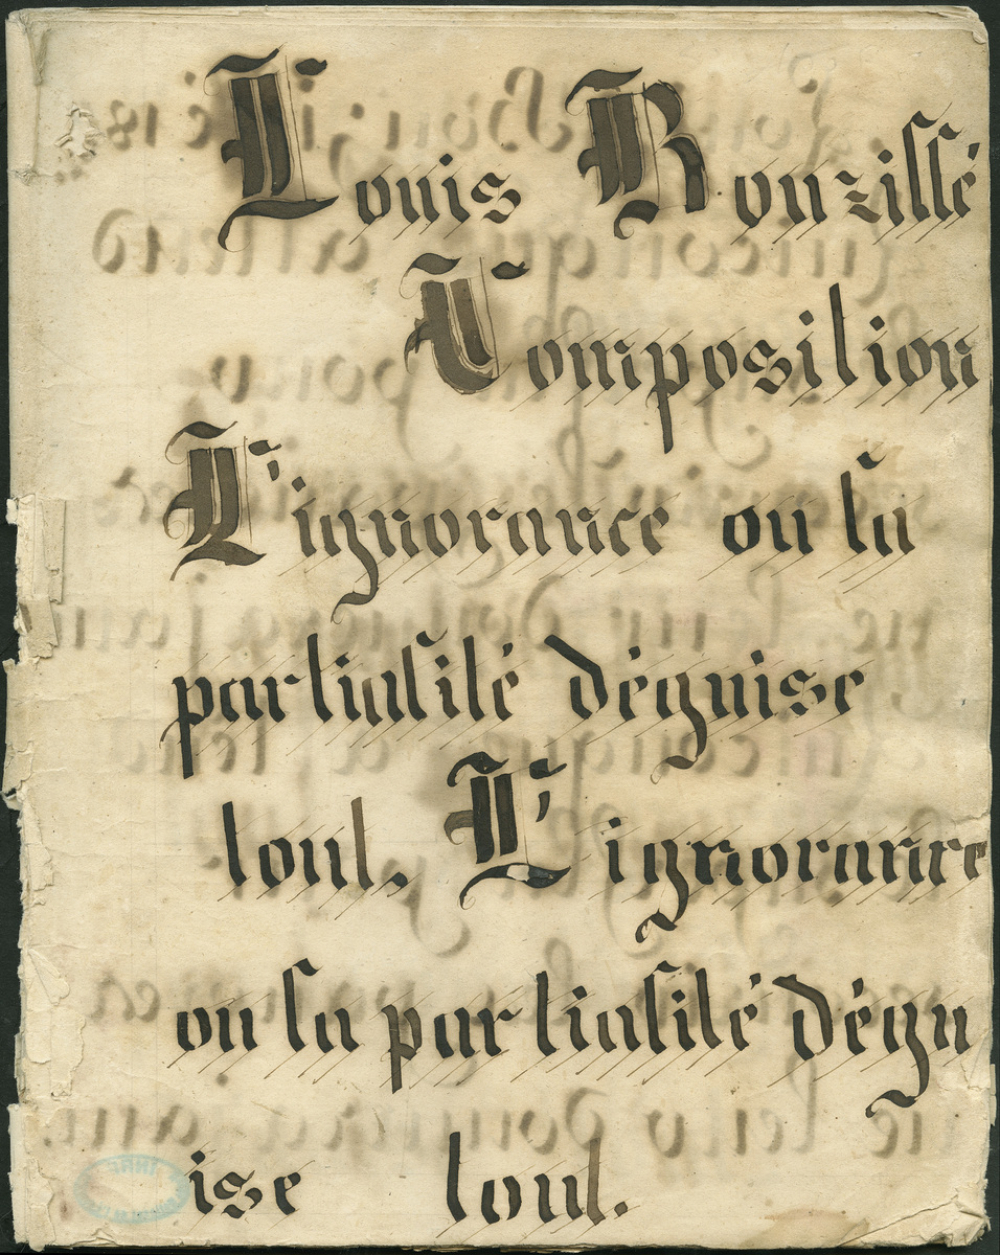 Louis Bouzillé
Composition
L'ignorance ou la
partialité déguise
tout. L'ignorance
ou la partialité dégu
ise tout.